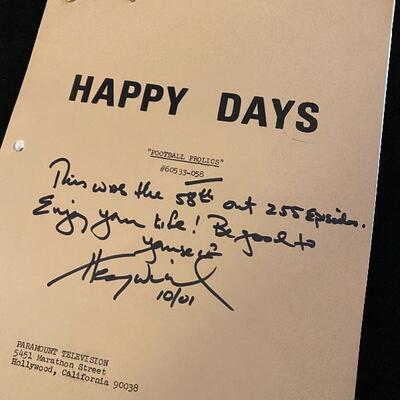 HAPPY DAYS
"FOOTBALL FROLICS"
#60533-058
This was the 58th out 255 Episodes.
Enjoy your Life! Be good to
yourself
Henry Winkler
10/01
PARAMOUNT TELEVISION
5451 Marathon Street
Hollywood, California 90038